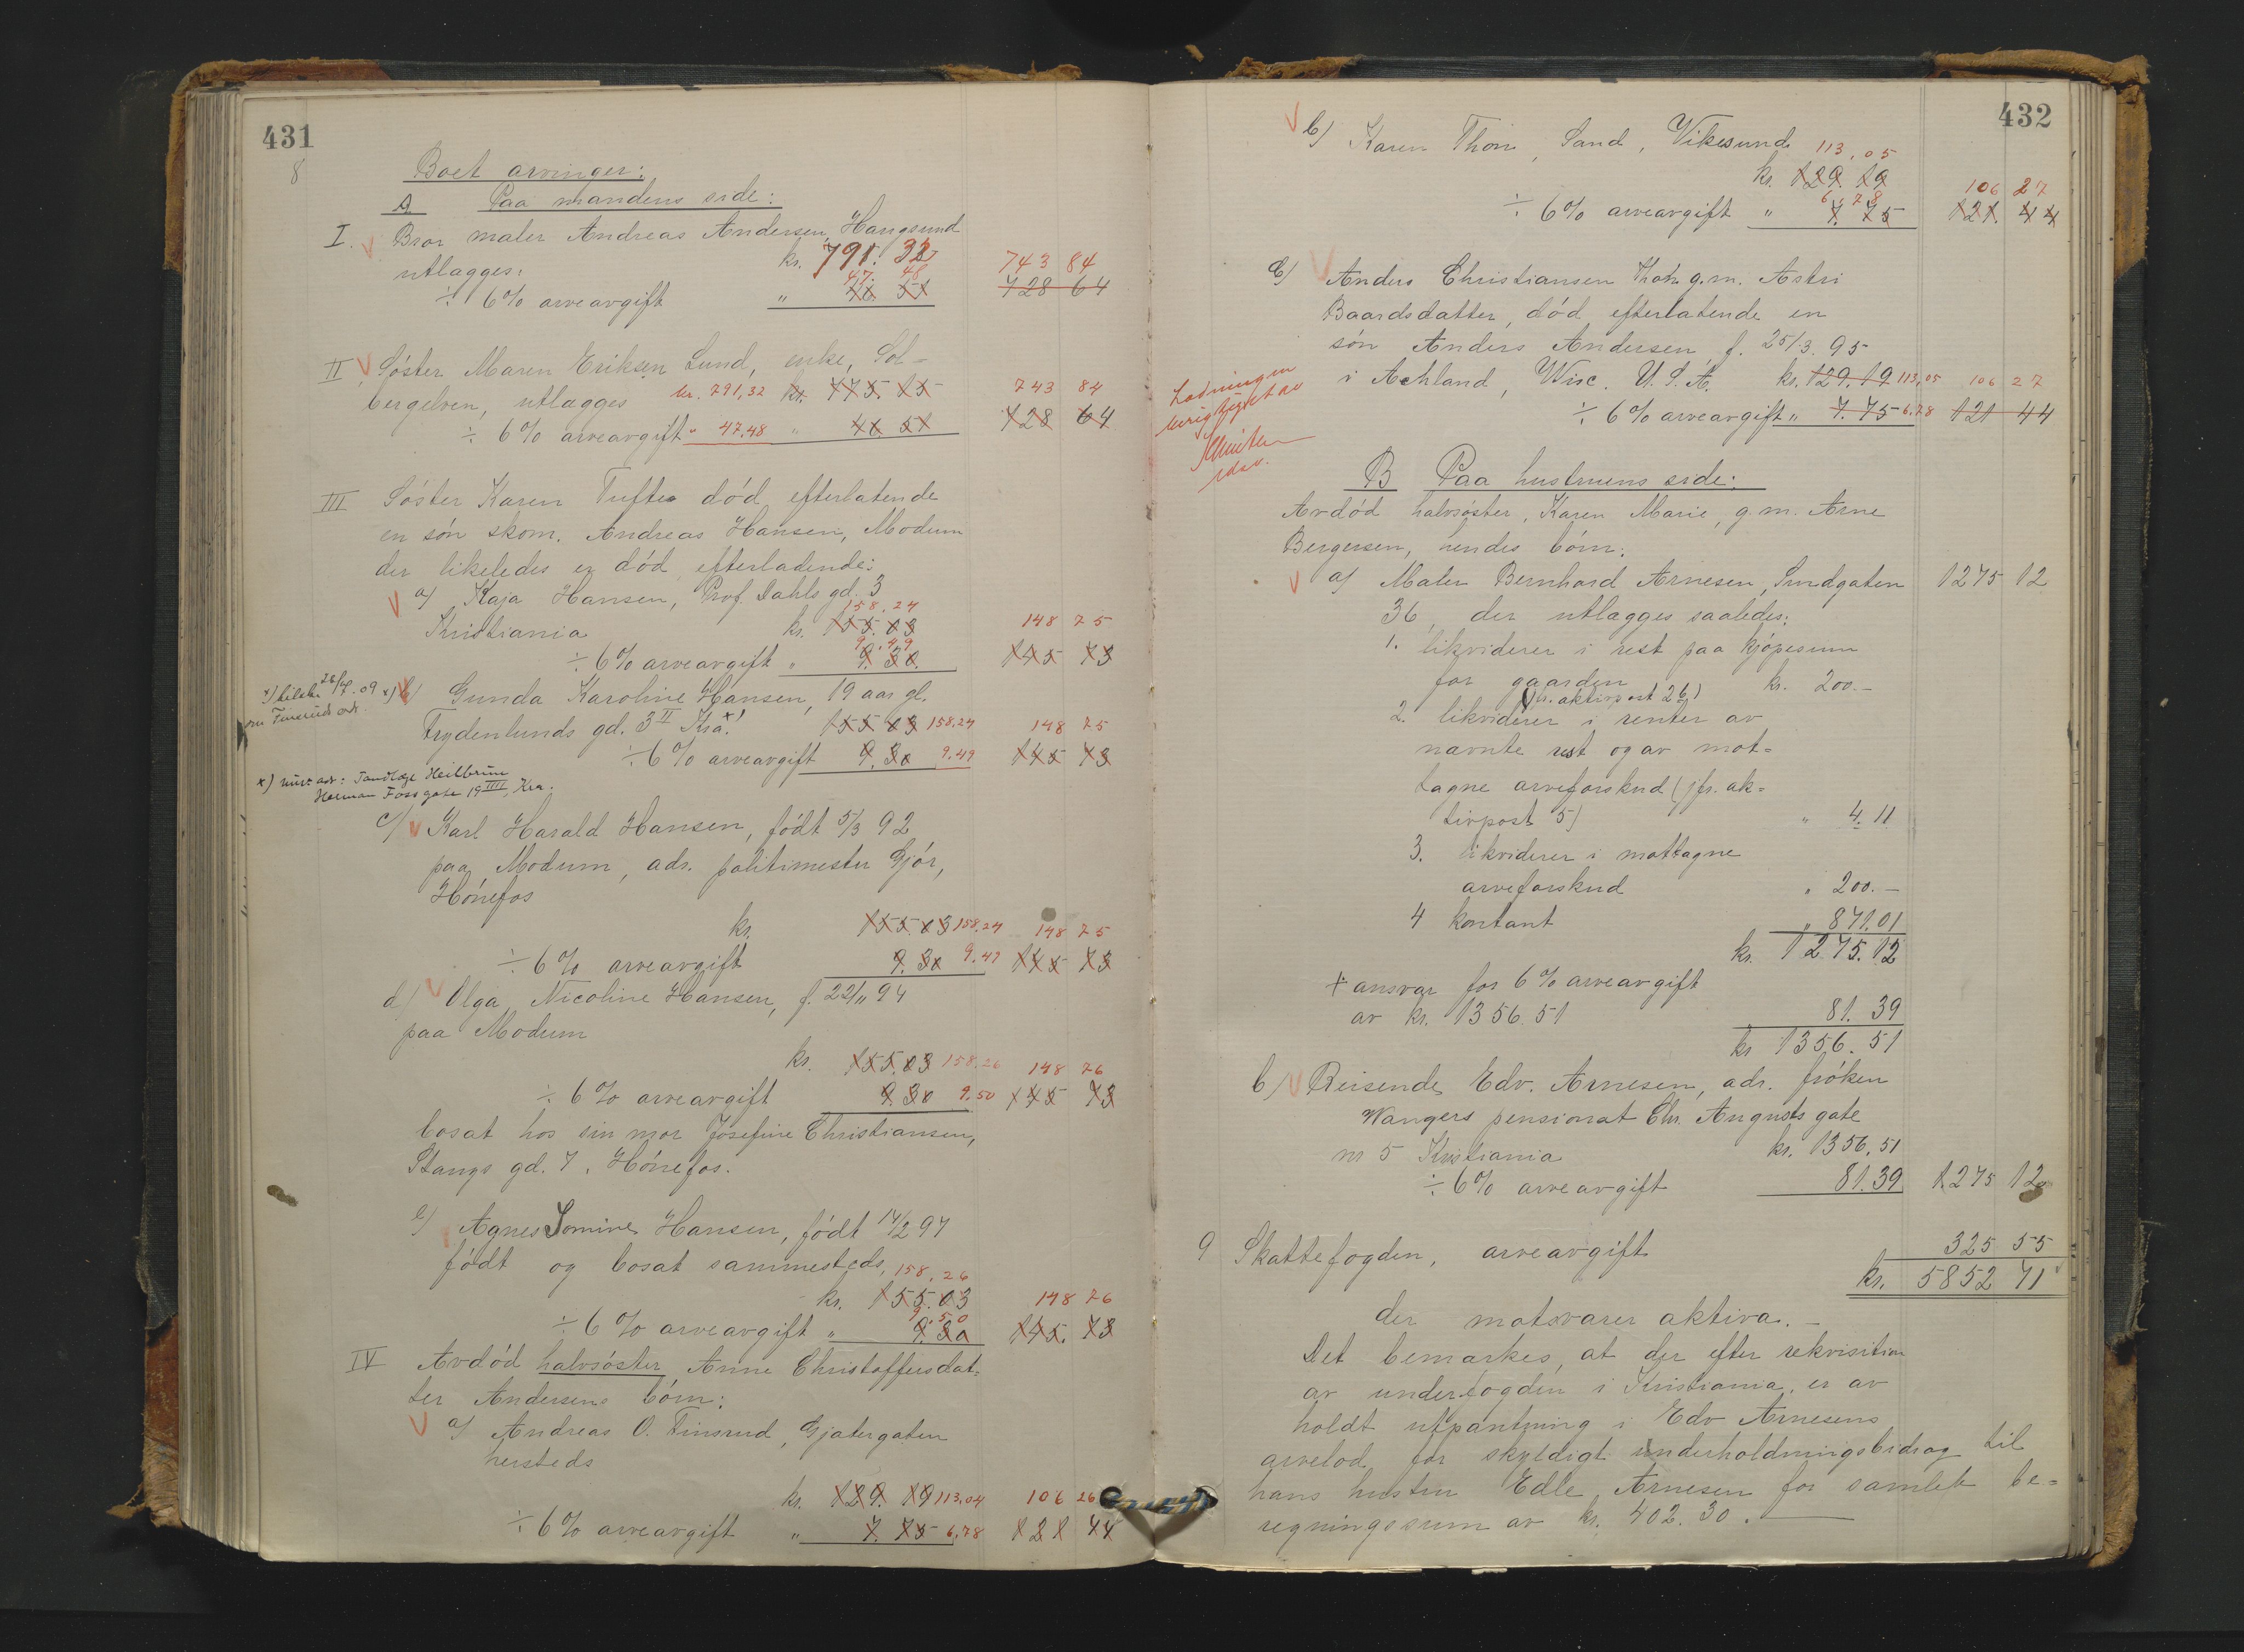 431
8
Boet arvinger:
A Paa mandens side:
I. Bror maler Andreas Andersen, Haugsund
utlægges: kr. 791. 32 743 84
47. 48
÷ 6% arveavgift " 46 51 728 64
II Søster Maren Eriksen Lund, enke, Sol-
bergelven, utlægges kr. 791,32 kr. 775. 15 743 84
÷ 6% arveavgift " 47.48 " 46 51 728 64
III Søster Karen Tufte død efterlatende
en søn skom. Andreas Hansen, Modum
der likeledes er død, efterladende:
a) Kaja Hansen, Prof. Dahls gd. 3
158.24
Kristiania kr. 155.03 148 75
9.49
÷ 6% arveavgift " 9.30 145 73
x) b) Gunda Karoline Hansen, 19 aar gl.
Frydenlunds gd. 3 II Kra. x) 155 03 158,24 148 75
÷ 6% arveavgift 9.30 9.49 145 73
x) nuv. adr: Tandlæge Heilbrun
Herman Foss gate 19 IIII, Kra.
c) Karl Harald Hansen, født 5/3 92
paa Modum, adr. politimester Gjør,
Hønefos
kr. 155.03 158,24 148 75
÷ 6% arveavgift 9.30 9.49 145 73
d) Olga Nicoline Hansen, f. 22/11 94
paa Modum
kr. 155.03 158.26 148 76
÷ 6% arveavgift 9.30 9.50 145 73
bosat hos sin mor Josefine Christiansen,
Stangs gd. 7. Hønefos.
e) Agnes Hansen, født 14/2 97
født og bosat sammesteds, 158,26
kr. 155.03 148 76
9.50
÷ 6% arveavgift " 9.30 145. 73
IV Avdød halvsøster Anne Christoffersdat-
ter Andersens børn:
a) Andreas O. Finsrud, Gjætergaten
hersteds
kr. 129. 19 113,04 106 26
÷ 6% arveavgift " 7.75 6,78 121 44
432
b) Karen Thon, Sand, Vikesund
113,05
kr. 129. 19 106 27
6,78
÷ 6% arveavgift " 7.75 121. 44
c) Anders Christiansen Thon g.m. Astri
Baardsdatter, død, efterlatende en
søn Anders Andersen f. 25/3. 95
i Achland, Wisc. U.S.A. kr. 129.19 113,05 106 27
÷ 6% arveavgift " 7.75 6,78 121 44
B Paa hustruens side:
Avdød halvsøster, Karen Marie, g.m. Arne
Bergersen, hendes børn:
a) Maler Bernhard Arnesen, Sundgaten 1275 12
36, der utlægges saaledes:
1. likviderer i rest paa kjøpesum
for gaarden kr. 200.-
(jfr. aktivpost 2 b)
2. likviderer i renter av
nævnte rest og av mot-
tagne arveforskud (jfr. ak-
tivpost 5) " 4.11
3. likviderer i mottagne
arveforskud " 200.-
4 kontant " 871.01
kr. 1275.12
+ ansvar for 6% arveavgift
av kr. 1356.51 81.39
kr 1356.51
b) Reisende Edv. Arnesen, adr. frøken
Wangers pensionat Chr. Augusts gate
nr 5 Kristiania kr. 1356,51
÷ 6% arveavgift 81.39 1275 12
9 Skattefogden, arveavgift 325 55
kr. 5852 71
der motsvarer aktiva.-
Det bemærkes, at der efter rekvisition
av underfogden i Kristiania, er av
holdt utpantning i Edv Arnesens
arvelod for skyldigt underholdningsbidrag til
hans hustru Edle Arnesen for samlet be-
regningssum av kr. 402.30.